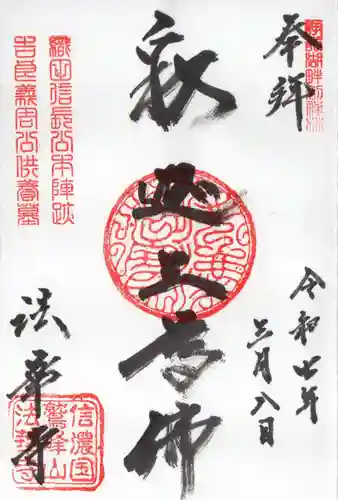 奉拝
令和七年
三月八日
釈迦牟尼佛
織田信長公本陣跡
吉良義周公供養墓
法華寺
信濃国
鷲峰山
法華寺